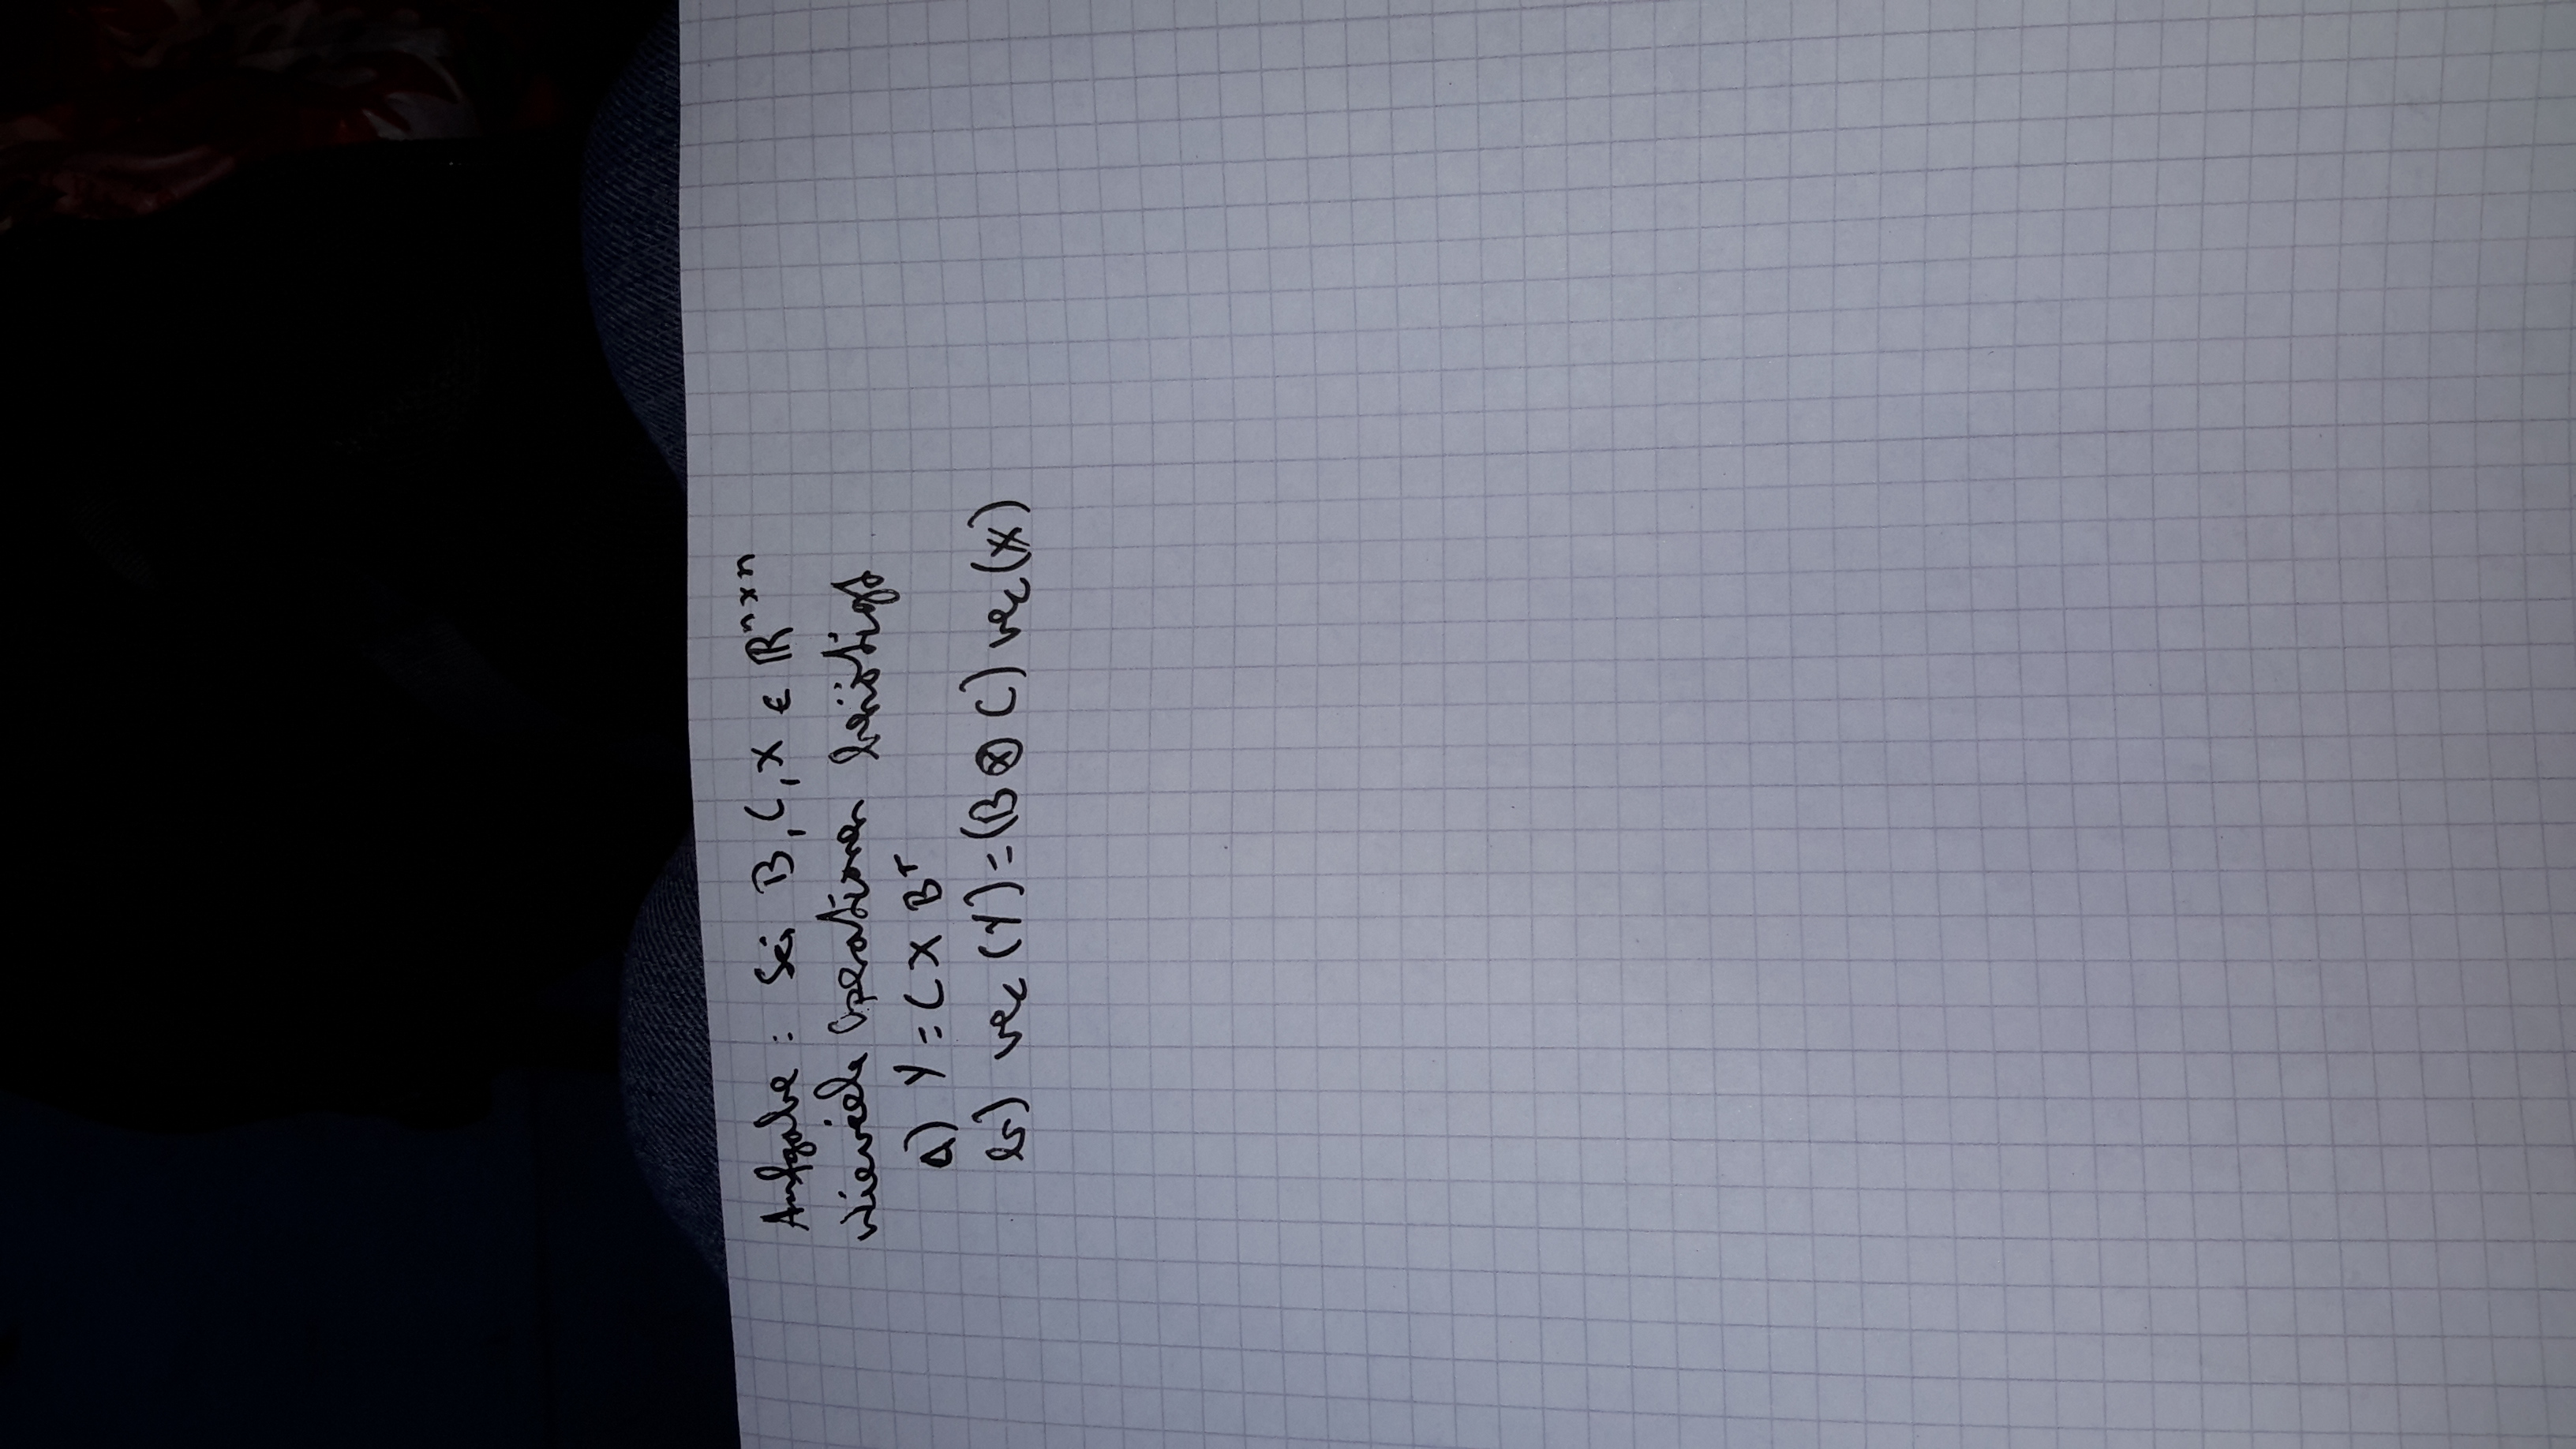 Aufgabe: Sei B, C, X ∈ ℝⁿˣⁿ
Wieviele Operationen benötigt
a) Y = C X Bᵀ
b) vec (Y) = (B ⊗ C) vec (X)